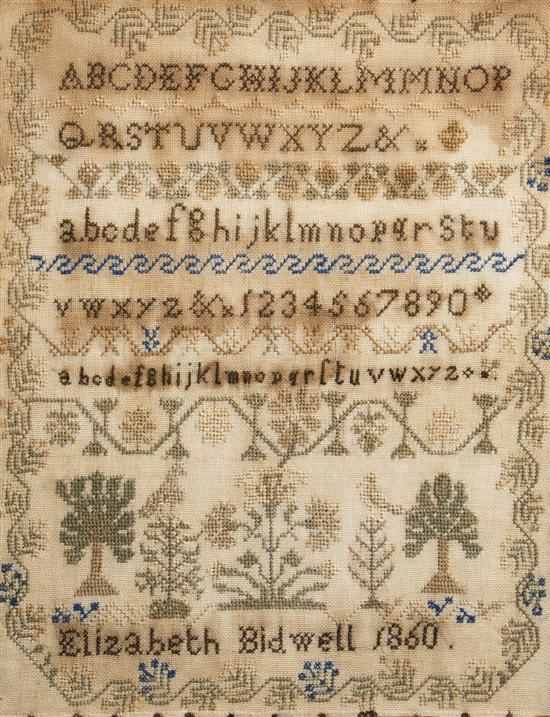 ABCDEFGHIJKLMMNOP
QRSTUVWXYZ&
abcdefghijklmnopqrstu
vwxyz&1234567890
abcdefghijklmnopqrſtuvwxyz
Elizabeth Bidwell 1860.